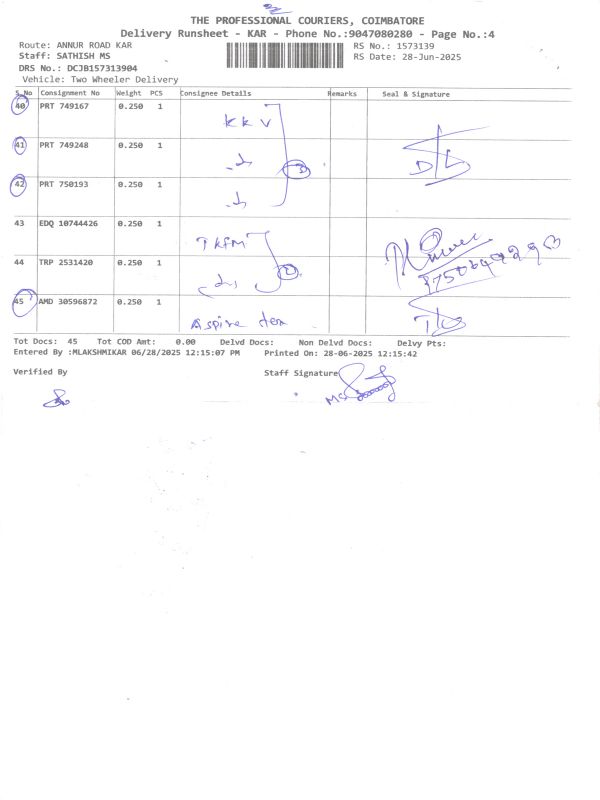 THE PROFESSIONAL COURIERS, COIMBATORE
Delivery Runsheet - KAR - Phone No.:9047080280 - Page No.:4
Route: ANNUR ROAD KAR RS No.: 1573139
Staff: SATHISH MS RS Date: 28-Jun-2025
DRS No.: DCJB157313904
Vehicle: Two Wheeler Delivery
S.No Consignment No Weight PCS Consignee Details Remarks Seal & Signature
40 PRT 749167 0.250 1 KKV
41 PRT 749248 0.250 1
3
42 PRT 750193 0.250 1
43 EDQ 10744426 0.250 1 TKFM
44 TRP 2531420 0.250 1
2
45 AMD 30596872 0.250 1 Aspire
Tot Docs: 45 Tot COD Amt: 0.00 Delvd Docs: Non Delvd Docs: Delvy Pts:
Entered By :MLAKSHMIKAR 06/28/2025 12:15:07 PM Printed On: 28-06-2025 12:15:42
Verified By Staff Signature